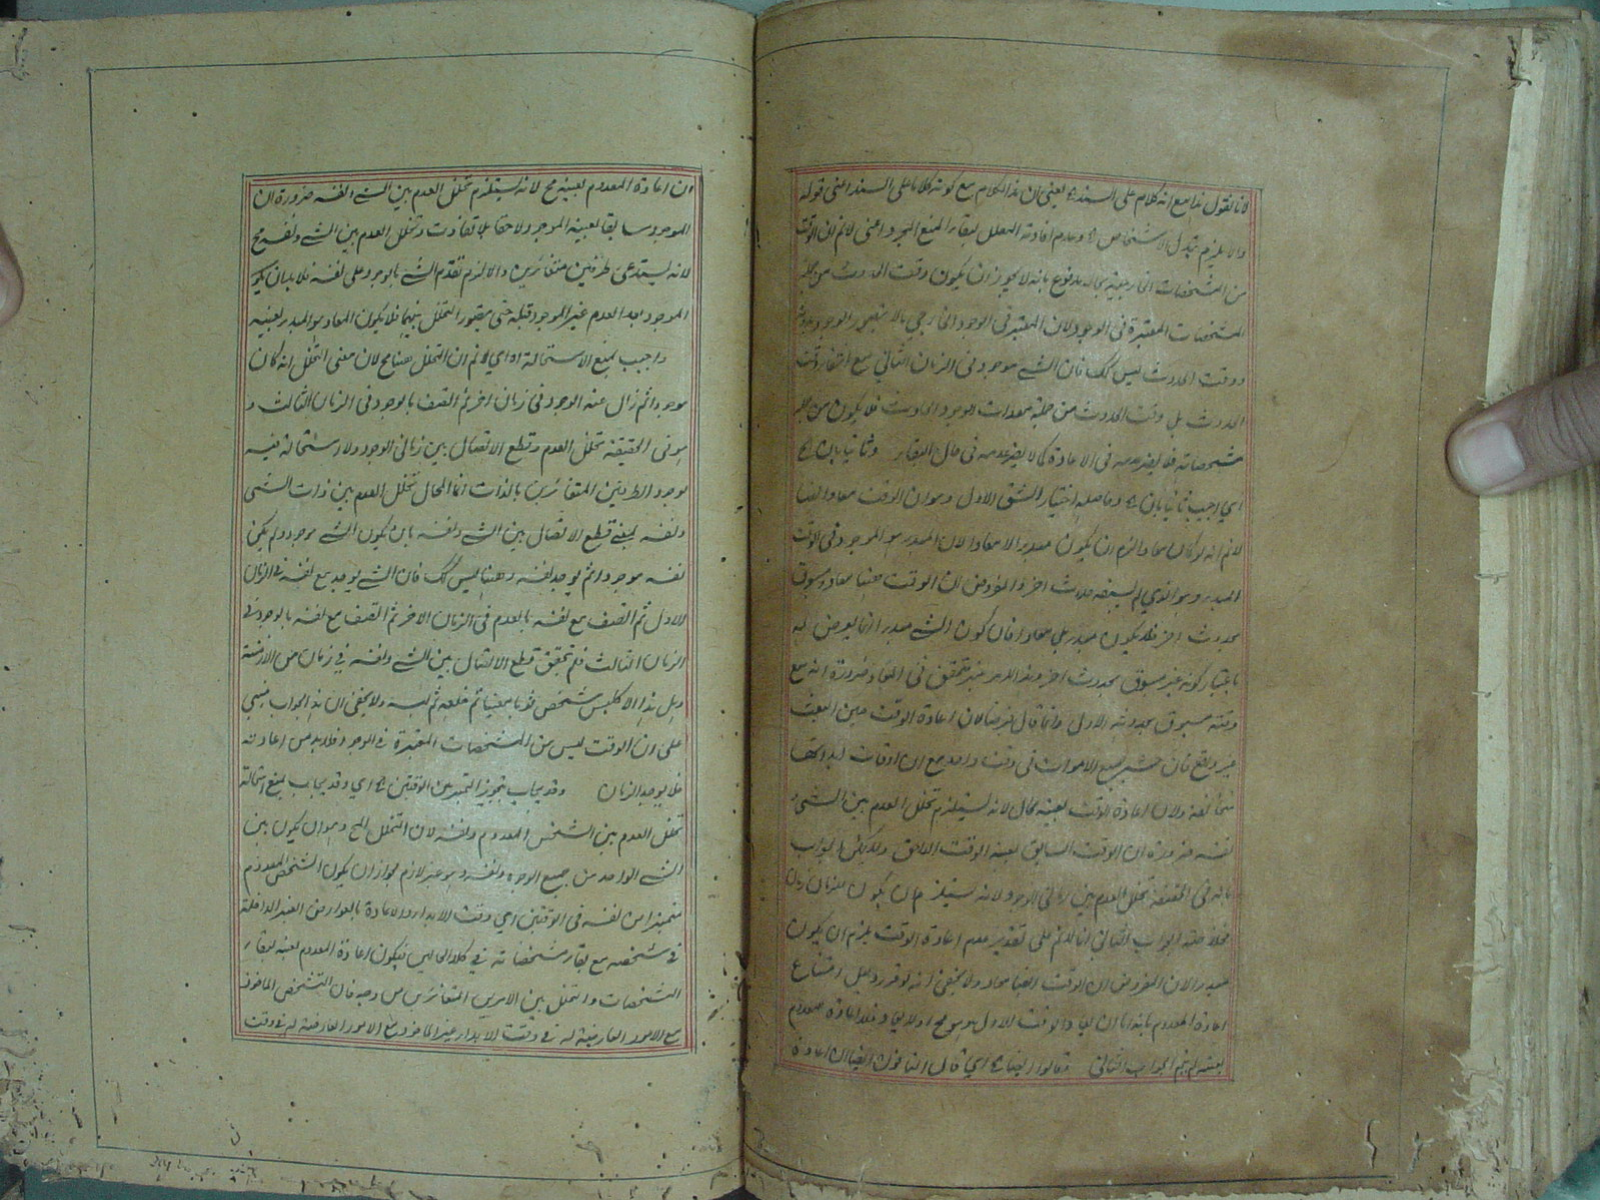 لانا نقول هذا مع انه كلام على السند الخ يعني ان هذا الكلام مع كونه كلاما على السند اعني قوله
والا يلزم تبدل الاشخاص الخ وعدم افادته المعلل لبقاء المنع المجرد اعني لا نم ان الوقت
من المشخصات الخارجية بحاله مدفوع بانه لا يجوز ان يكون وقت الحدوث من جملة
المشخصات المعتبرة في الوجود لان المعتبر في الوجود الخارجي ما لا يتصور الوجود بدونه
ووقت الحدوث ليس كك فان الشے موجود في الزمان الثاني مع انتفاء وقت
الحدوث بل وقت الحدوث من جملة معدات وجود الحادث فلا يكون من جملة
مشخصاته فلا يضر عدمه في الاعادة كما لا يضر عدمه في حال البقاء وثانيا بان الخ
اي اجيب ثانيا بان الخ وحاصله اختيار الشق الاول وهو ان الوقت معاد ايضا
لا نم انه لو كان معادا لزم ان يكون مبدءا لا معادا لان المبدء هو الموجود في الوقت
المبدء وهو الذي لم يسبقه حدوث اخر والمفروض ان الوقت ههنا معاد ومسبوق
بحدوث اخر فلا يكون مبدء بل معادا فان كون الشے مبدء انما يعرض له
باعتبار كونه غير مسبوق بحدوث اخر وهذا الامر غير متحقق في المعاد ضرورة انه مع
وقته مسبوق بحدوثه الاول وانما قال فرضا لان اعادة الوقت حين البعث
غير واقع فان حشر جميع الاموات في وقت واحد مع ان اوقات ابتدائها
مختلفة ولان اعادة الوقت بعينه محال لانه يستلزم تخلل العدم بين الشے و
نفسه ضرورة ان الوقت السابق بعينه الوقت اللاحق ولا يمكن الجواب
بانه في الحقيقة تخلل العدم بين زماني الوجود لانه يستلزم ان يكون للزمان زمان
خلاصة الجواب الثاني انا لا نم على تقدير عدم اعادة الوقت يلزم ان يكون
مبدء لان المفروض ان الوقت ايضا معاد ولا يخفى انه لو قرر دليل امتناع
اعادة المعدوم بانه اما ان يعاد الوقت الاول وهو مح اولا يعاد فلا اعادة للمعدوم
بعينه لم يتم الجواب الثاني وقالوا ايضا الخ اي قال النافون ايضا ان اعادة
ان اعادة المعدوم بعينه مح لانه يستلزم تخلل العدم بين الشے ونفسه ضرورة ان
الموجود سابقا بعينه الموجود لاحقا بلا تفاوت وتخلل العدم بين الشے ونفسه مح
لانه يستدعي طرفين متغائرين والا لزم تقدم الشے بالوجود على نفسه فلا بد ان يكون
الموجود بعد العدم غير الموجود قبله حتى يتصور التخلل بينهما فلا يكون المعاد هو المبدء بعينه
واجيب بمنع الاستحالة اه اي لا نم ان التخلل ههنا مح لان معنى التخلل انه كان
موجودا ثم زال عنه الوجود في زمان اخر ثم اتصف بالوجود في الزمان الثالث و
هو في الحقيقة تخلل العدم وقطع الاتصال بين زماني الوجود ولا استحالة فيه
لوجود الطرفين المتغائرين بالذات انما المحال تخلل العدم بين ذات الشے
ونفسه بمعنى قطع الاتصال بين الشے ونفسه بان يكون الشے موجودا ولم يكن
نفسه موجودا ثم يوجد نفسه وههنا ليس كك فان الشے يوجد مع نفسه في الزمان
الاول ثم اتصف مع نفسه بالعدم في الزمان الاخر ثم اتصف مع نفسه بالوجود في
الزمان الثالث فلم يتحقق قطع الاتصال بين الشے ونفسه في زمان من الازمنة
وهل هذا الا كلبس شخص ثوبا معينا ثم خلعه ثم لبسه ولا يخفى ان هذا الجواب مبني
على ان الوقت ليس من المشخصات المعتبرة في الوجود فلا بد من اعادته
فلا يوجد الزمان وقد يجاب بتجويز التميز بين الوقتين الخ اي وقد يجاب بمنع استحالة
تخلل العدم بين الشخص المعدوم ونفسه لان التخلل المح وهو ان يكون بين
الشے الواحد من جميع الوجوه ونفسه وهو غير لازم لجواز ان يكون الشخص المعدوم
متميزا من نفسه في الوقتين اي وقت الابداء والاعادة بالعوارض الغير الداخلة
في تشخصه مع بقاء مشخصاته في كلا الحالين فيكون اعادة المعدوم بعينه لبقاء
التشخصات والتخلل بين الامرين المتغائرين من وجه فان الشخص الماخوذ
مع الامور العارضة له في وقت الابداء غير الماخوذ مع الامور العارضة له في وقت